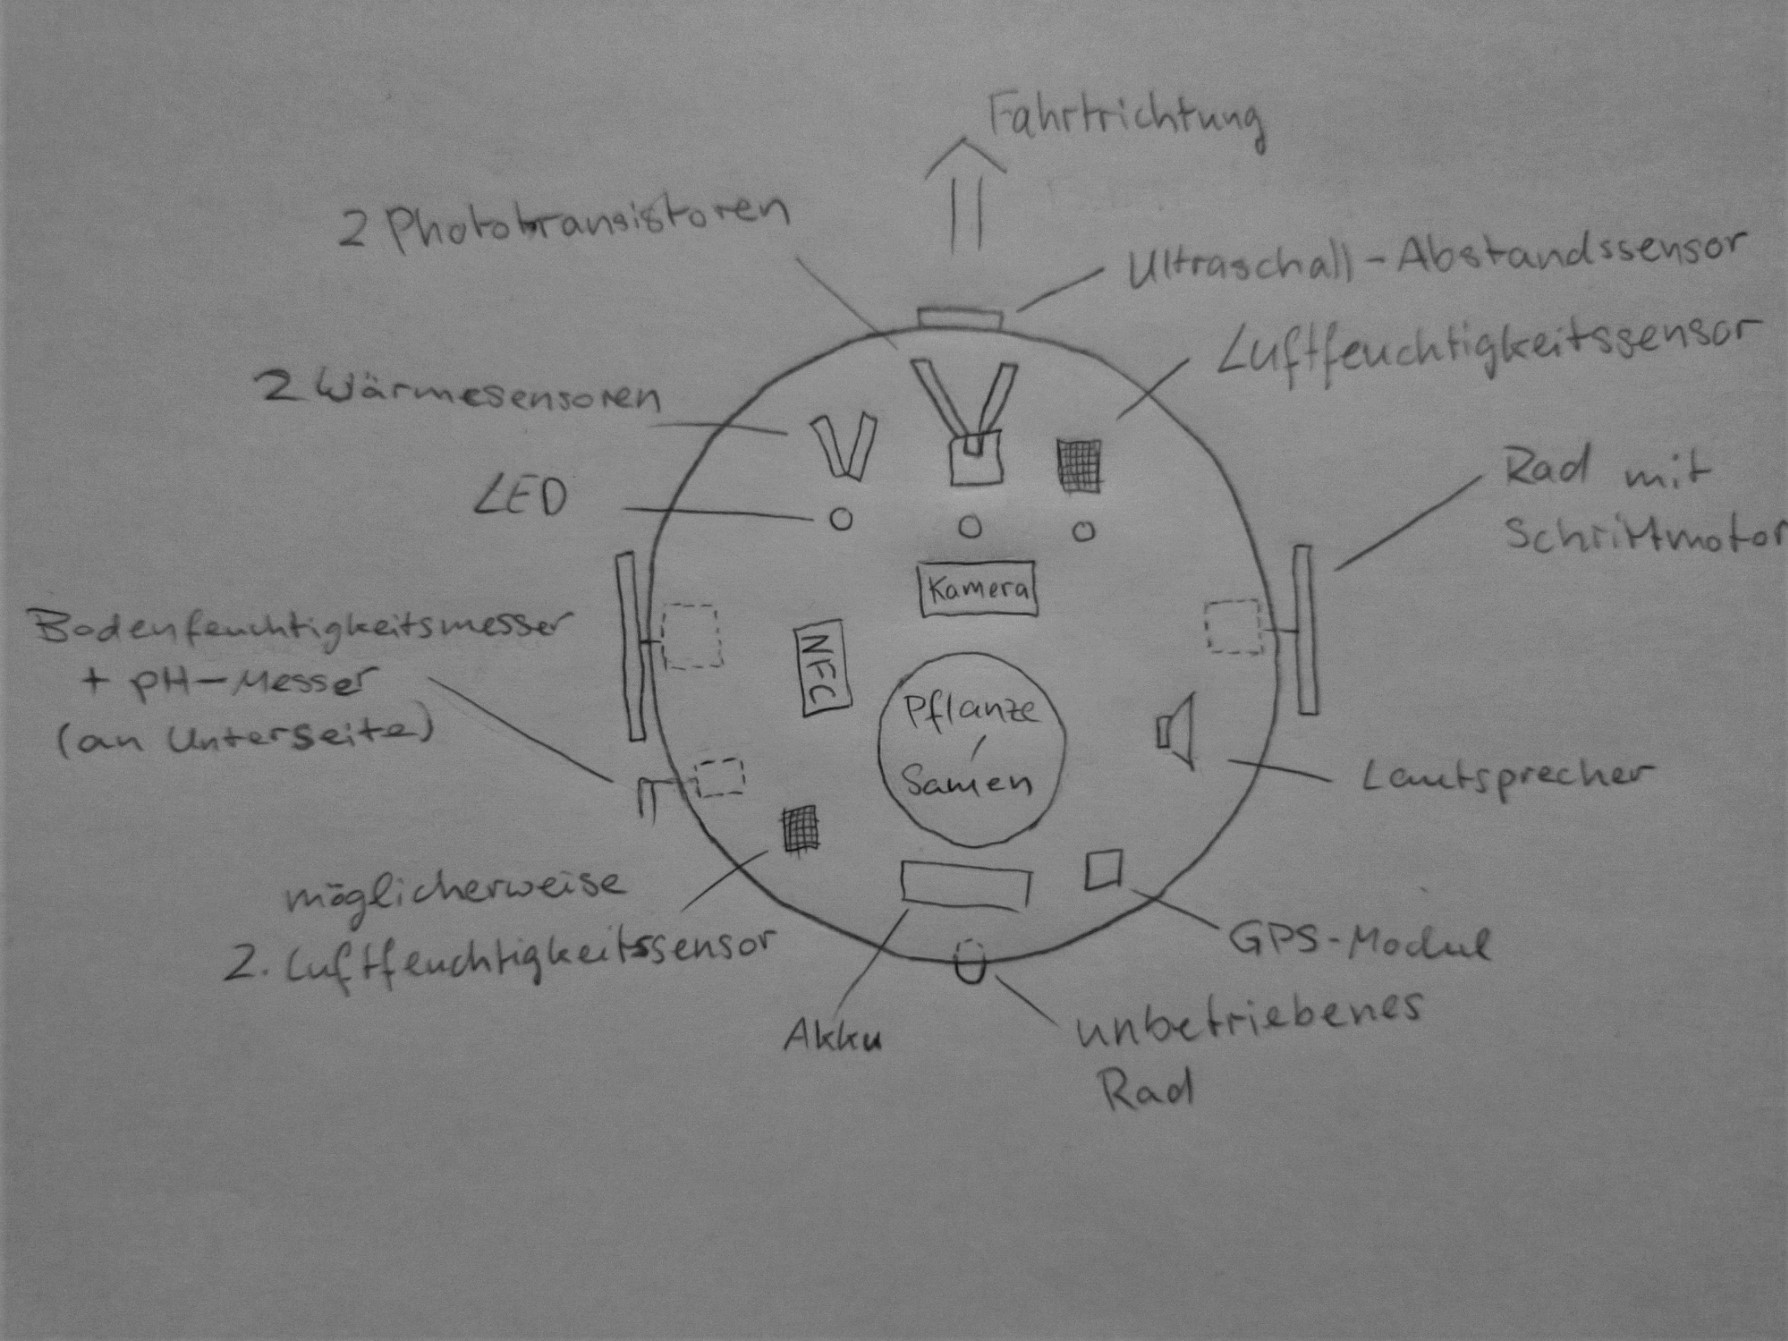 Fahrtrichtung
2 Phototransistoren
Ultraschall-Abstandssensor
Luftfeuchtigkeitssensor
2 Wärmesensoren
LED
Rad mit
Schrittmotor
Kamera
Bodenfeuchtigkeitsmesser
+ pH-Messer
(an Unterseite)
NFC
Pflanze
/
Samen
Lautsprecher
möglicherweise
2. Luftfeuchtigkeitssensor
GPS-Modul
Akku
unbetriebenes
Rad